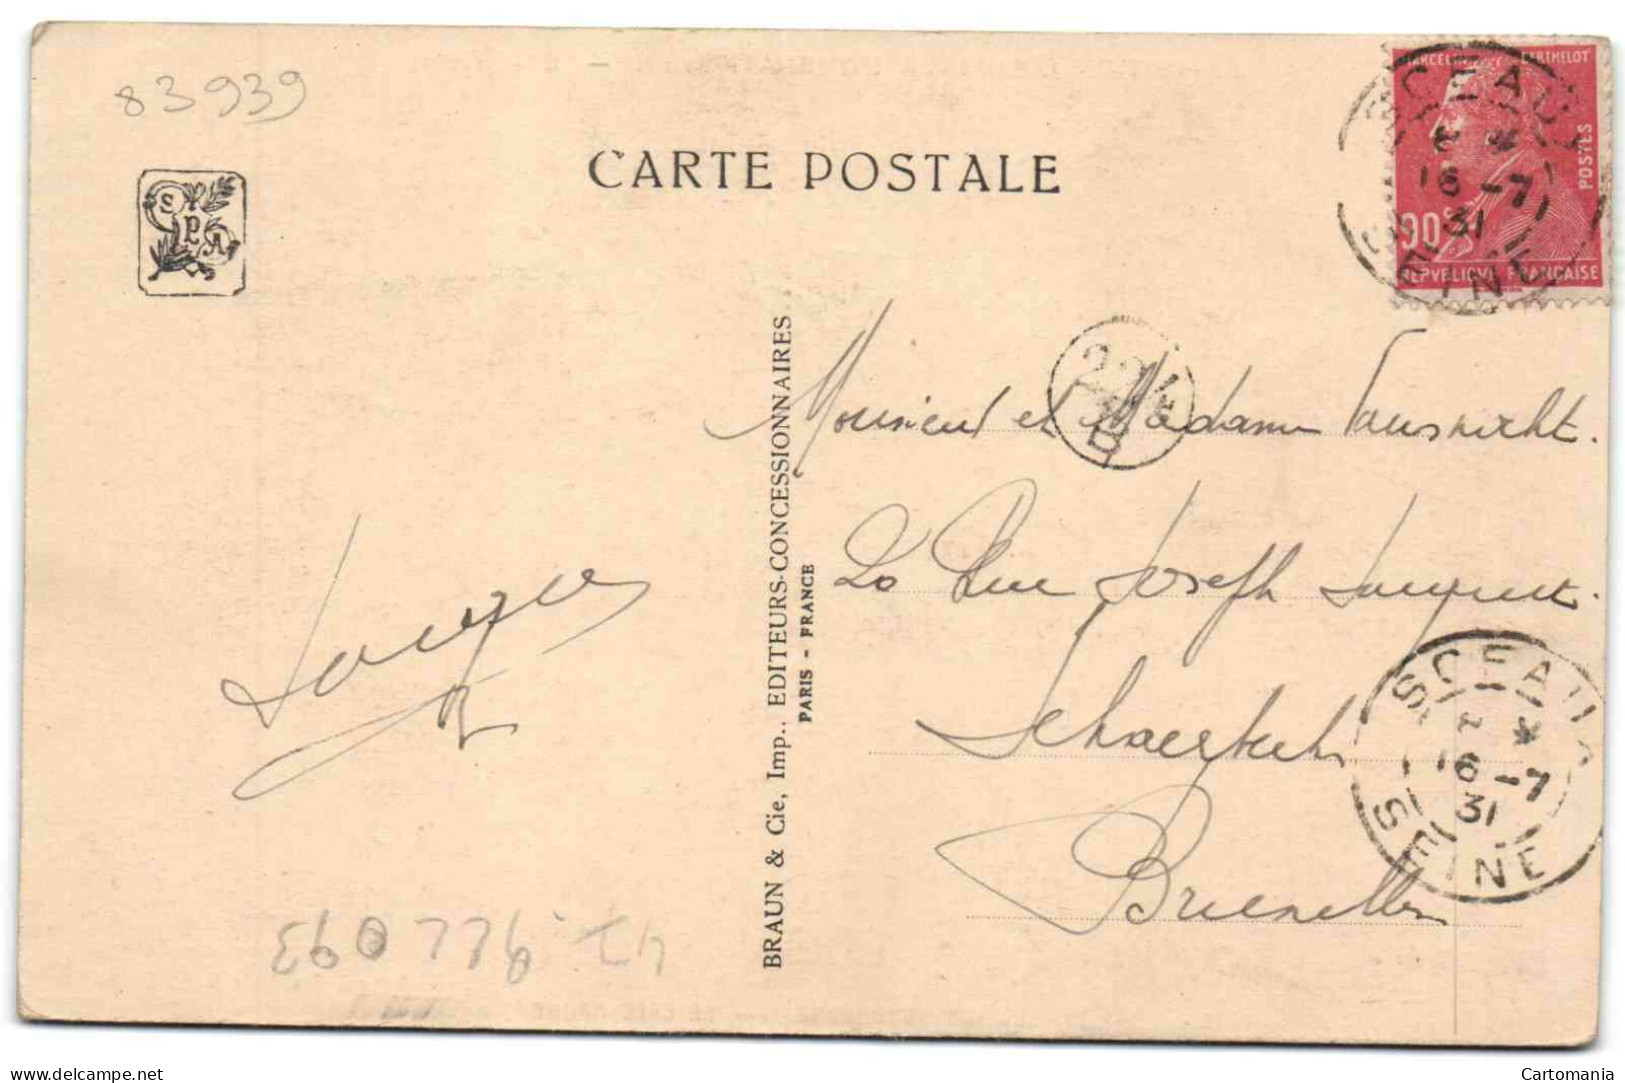 83939
CARTE POSTALE
S P A
MARCELIN BERTHELOT
POSTES
90c
REPVBLIQVE FRANÇAISE
SCEAUX
16 -7
31
SEINE
22
Monsieur et Madame Vausnicht.
20 Rue Joseph
Schaerbeek
Bruxelles
SCEAUX
16 -7
31
SEINE
BRAUN & Cie, Imp., EDITEURS-CONCESSIONNAIRES
PARIS - FRANCE
delcampe.net
Cartomania